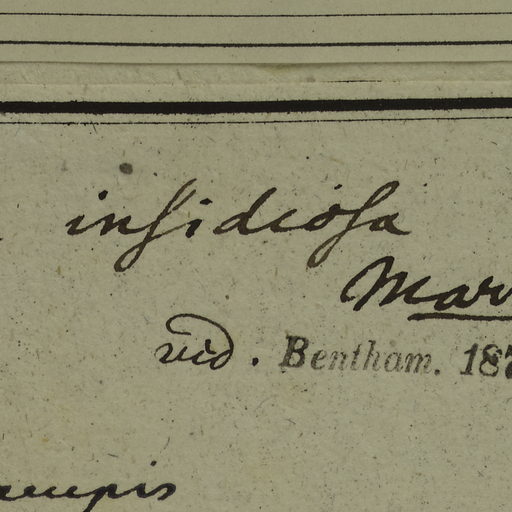 insidiosa
Mar
vid. Bentham. 187